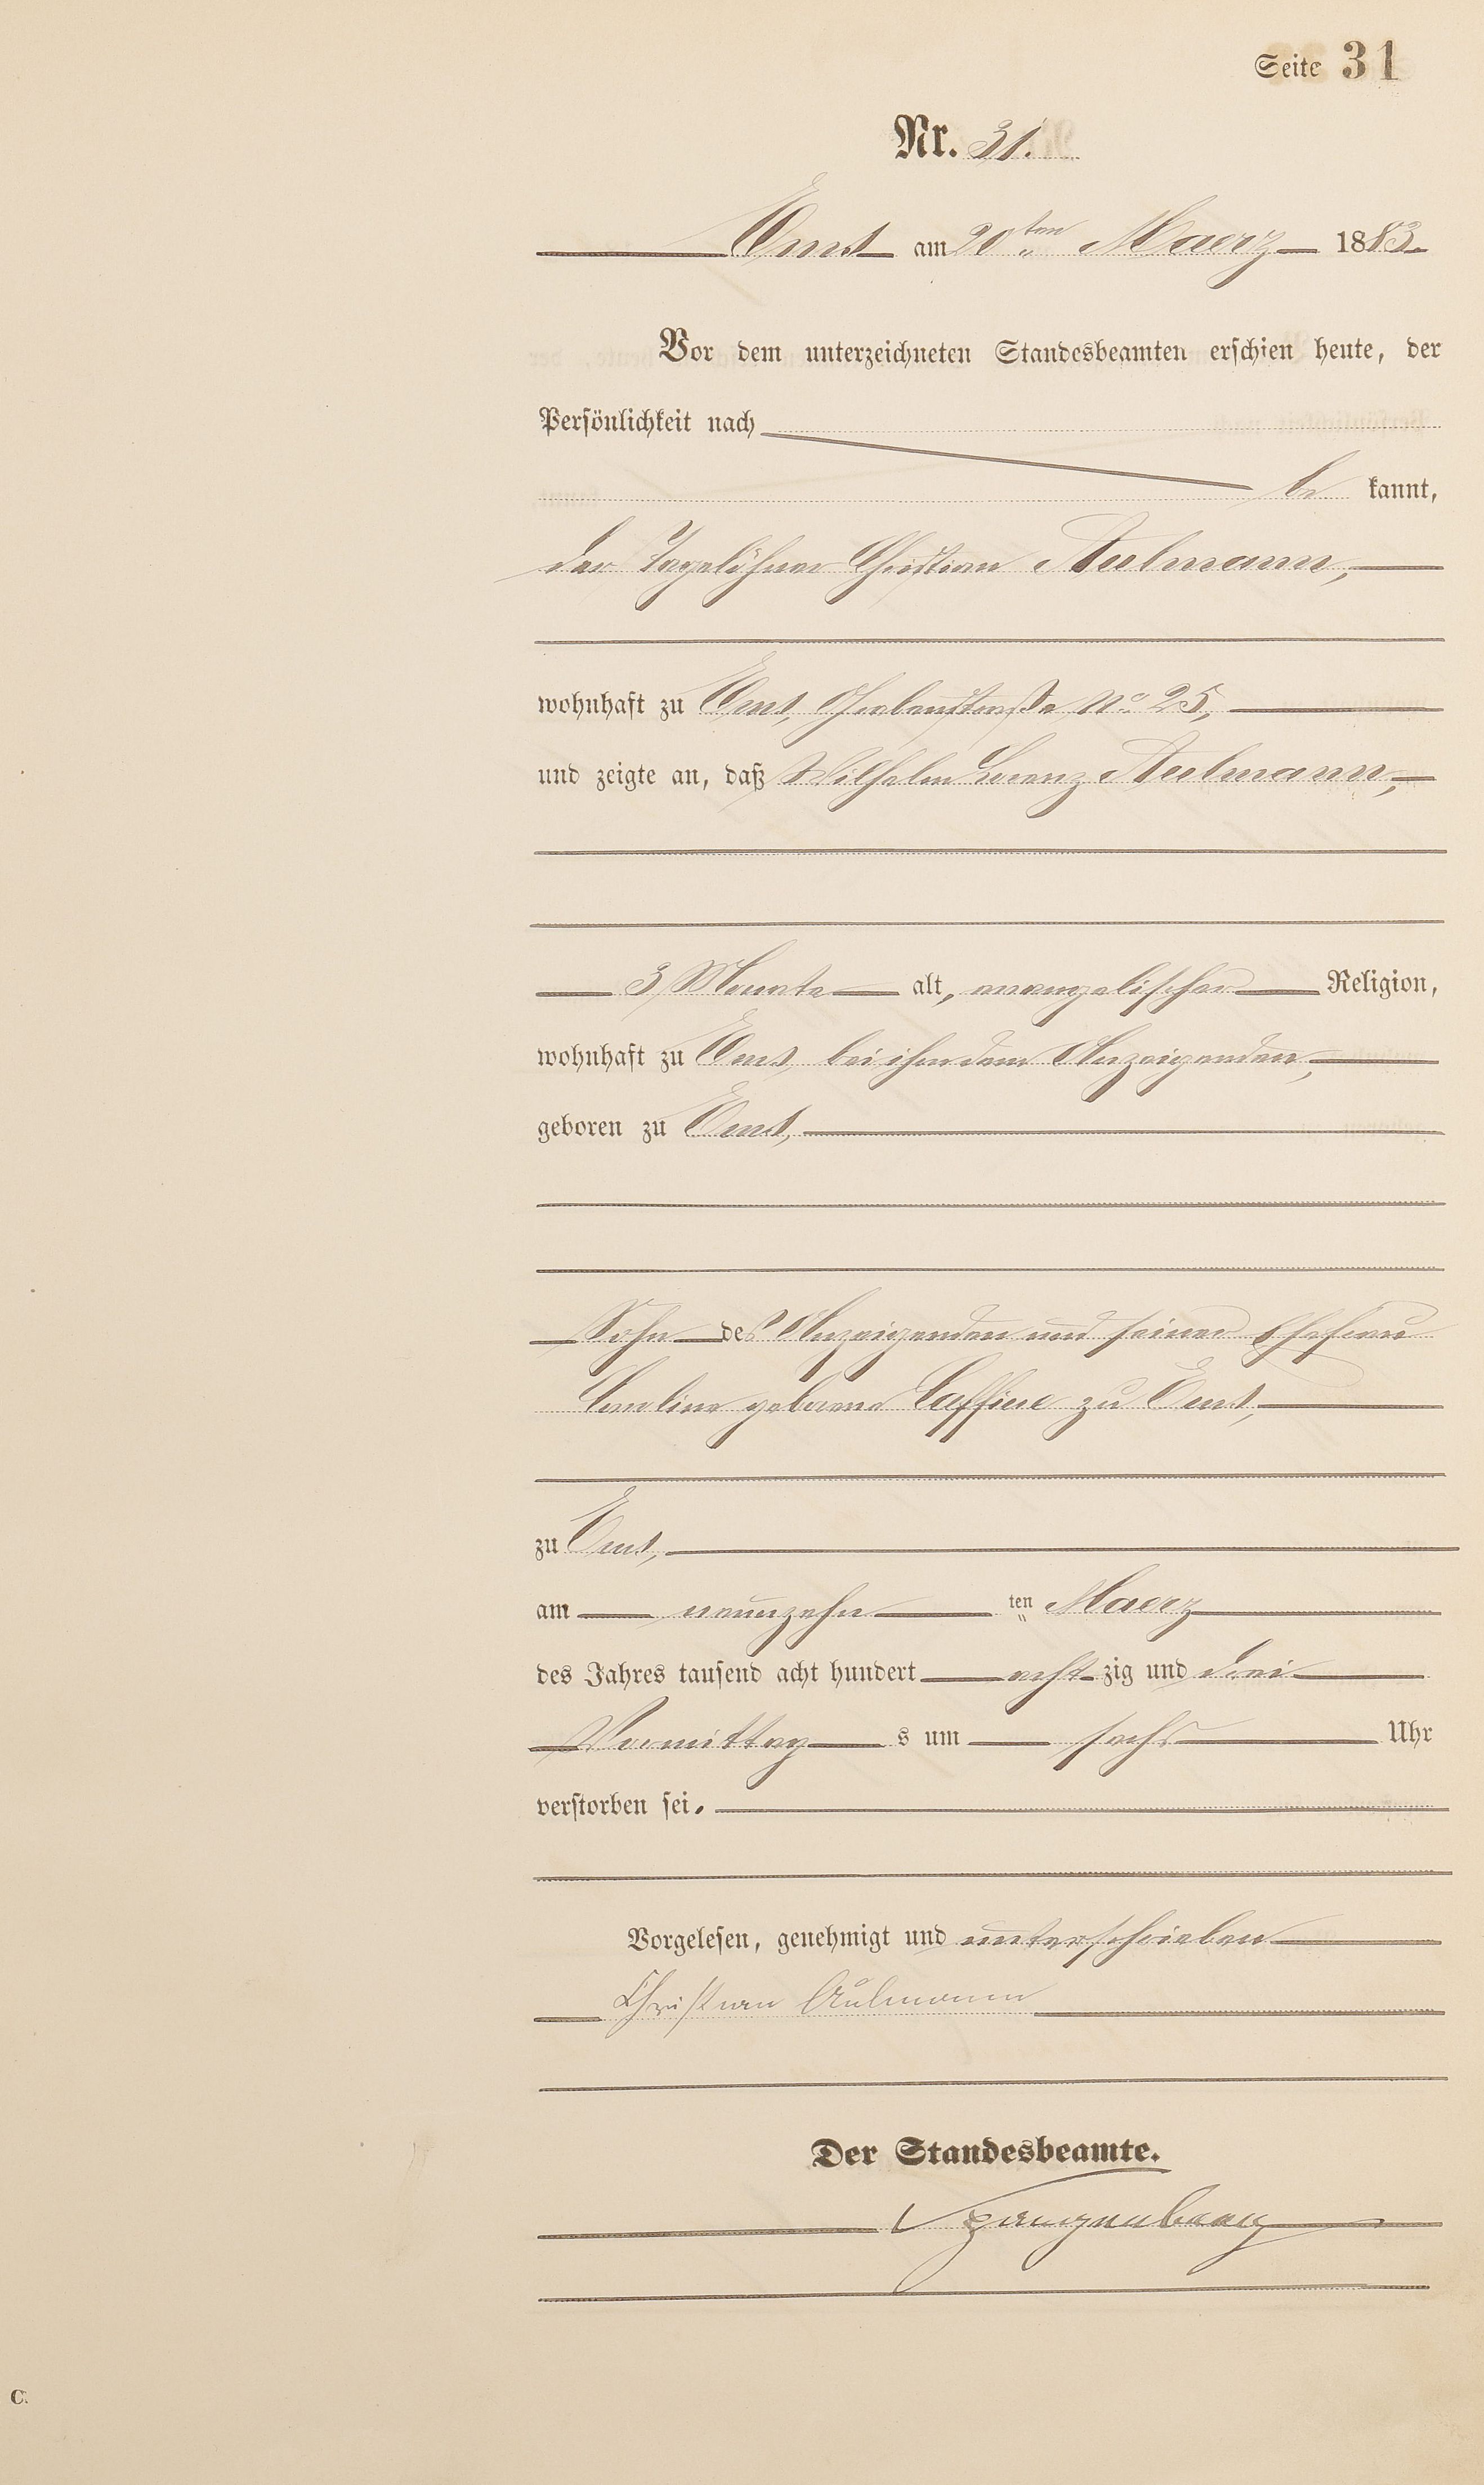 Seite 31
Nr. 31.
Ems am 20ten Maerz 1883.
Vor dem unterzeichneten Standesbeamten erschien heute, der
Persönlichkeit nach
be kannt,
der Tagelöhner Christian Aulmann,
wohnhaft zu Ems, Grabenstraße No 25,
und zeigte an, daß Wilhelm Lorenz Aulmann,
3 Monate alt, evangelischer Religion,
wohnhaft zu Ems, bei ihm dem Anzeigenden,
geboren zu Ems,
Sohn des Anzeigenden und seiner Ehefrau
Caroline geborene zu Ems,
zu Ems,
am neunzehn ten Maerz
des Jahres tausend acht hundert acht zig und drei
Vormittag s um sechs Uhr
verstorben sei.
Vorgelesen, genehmigt und unterschrieben
Christian Aulmann
Der Standesbeamte.
Spangenberg
C.